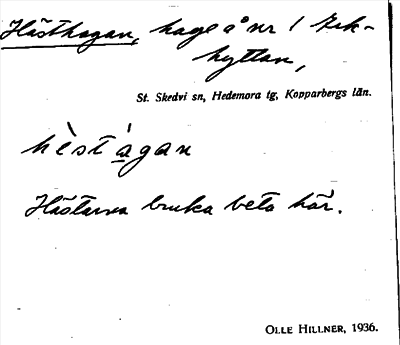 Hästhagan, hage å nr 1 Irk-
hyttan,
St. Skedvi sn, Hedemora tg, Kopparbergs län.
hὲstàgan
Hästarna bruka beta här.
OLLE HILLNER, 1936.